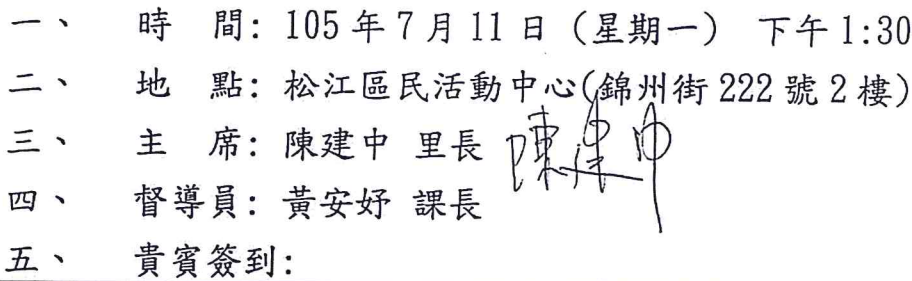 一、 時 間: 105年7月11日(星期一) 下午1:30
二、 地 點: 松江區民活動中心(錦州街222號2樓)
三、 主 席: 陳建中 里長 陳建中
四、 督導員: 黃安妤 課長
五、 貴賓簽到: